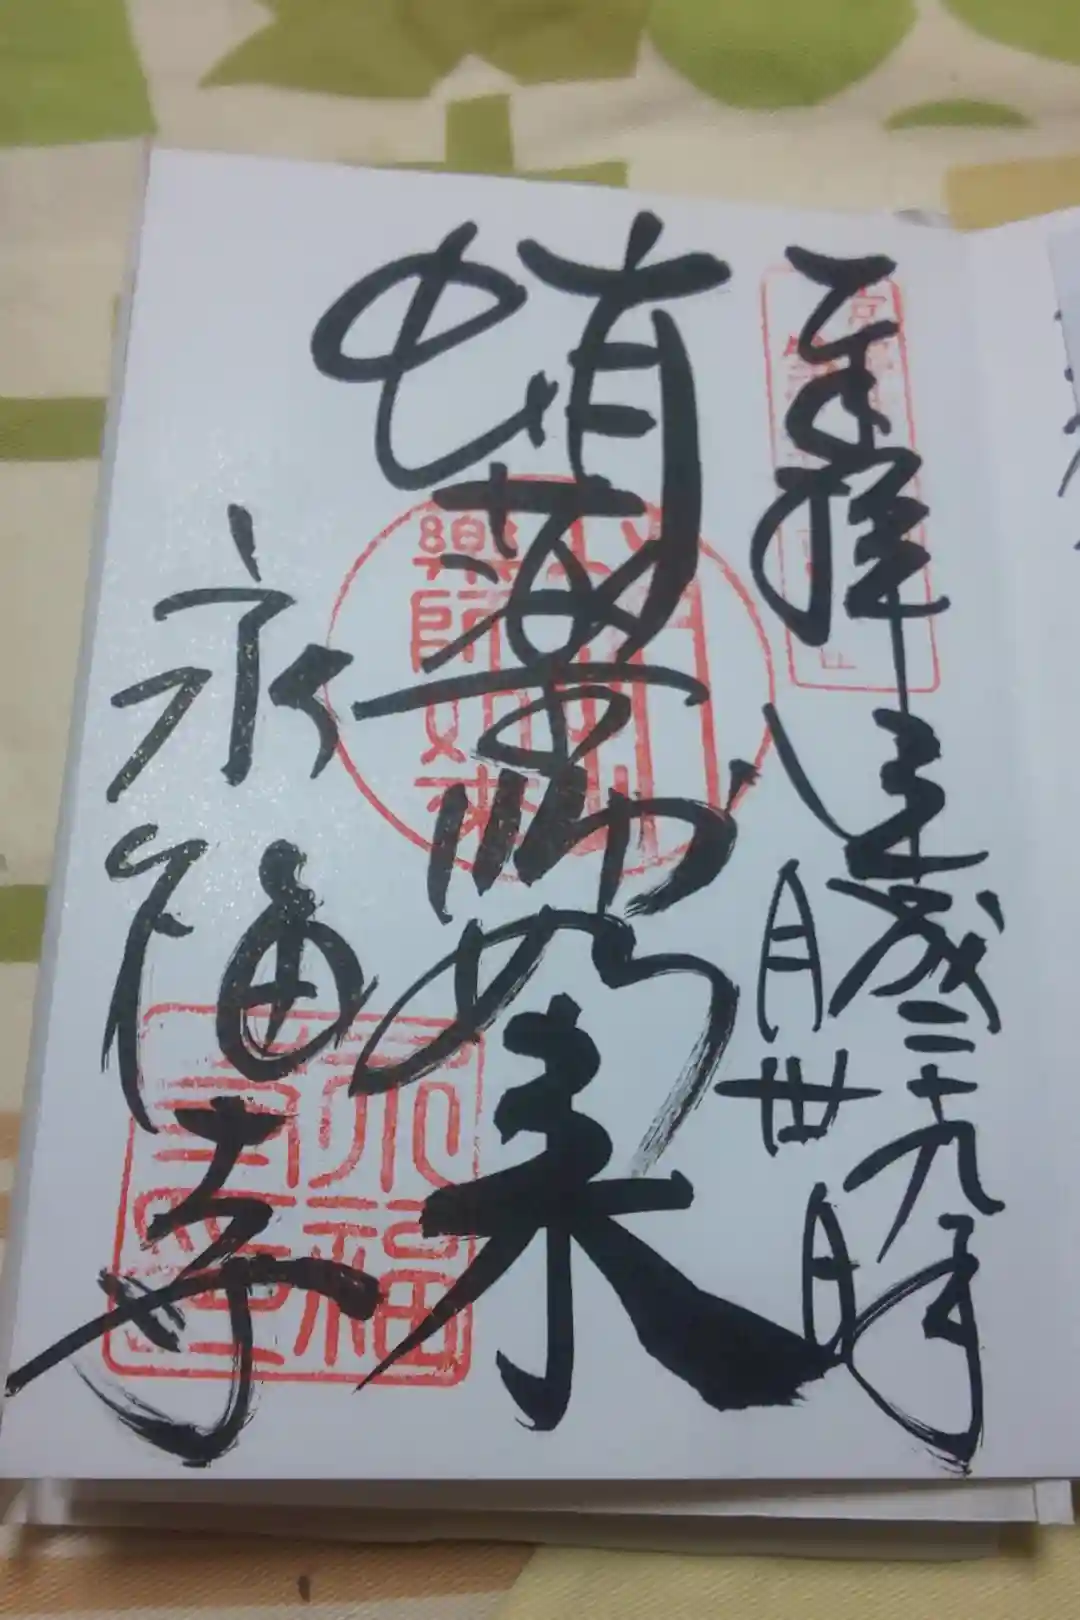 奉拝
平成二十九年
月
日
蛸薬師如来
永福寺
師如来
永福